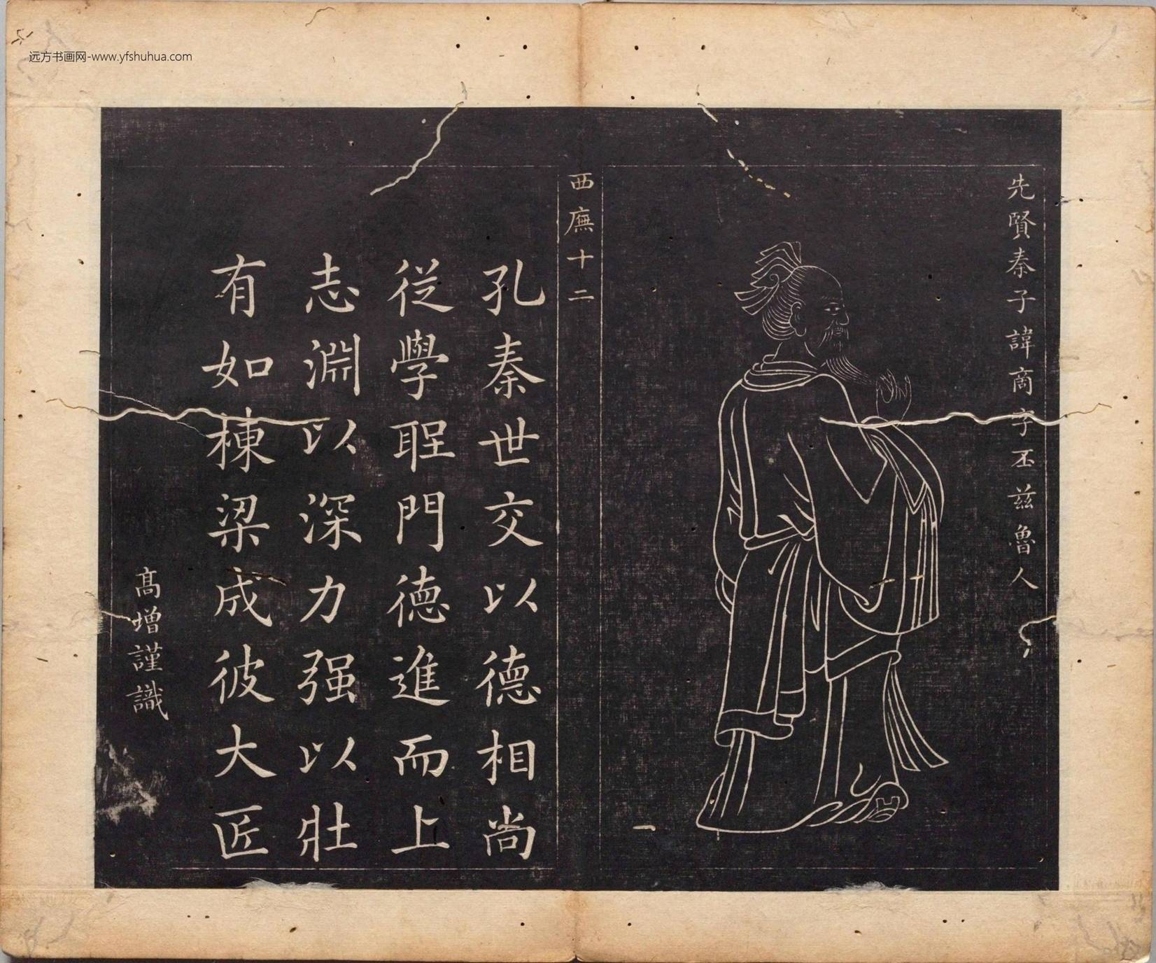 远方书画网-www.yfshuhua.com
先賢秦子諱商字丕茲魯人
西廡十二
孔秦世交以德相尚
從學聖門德進而上
志淵以深力强以壯
有如棟梁成彼大匠
高增謹識